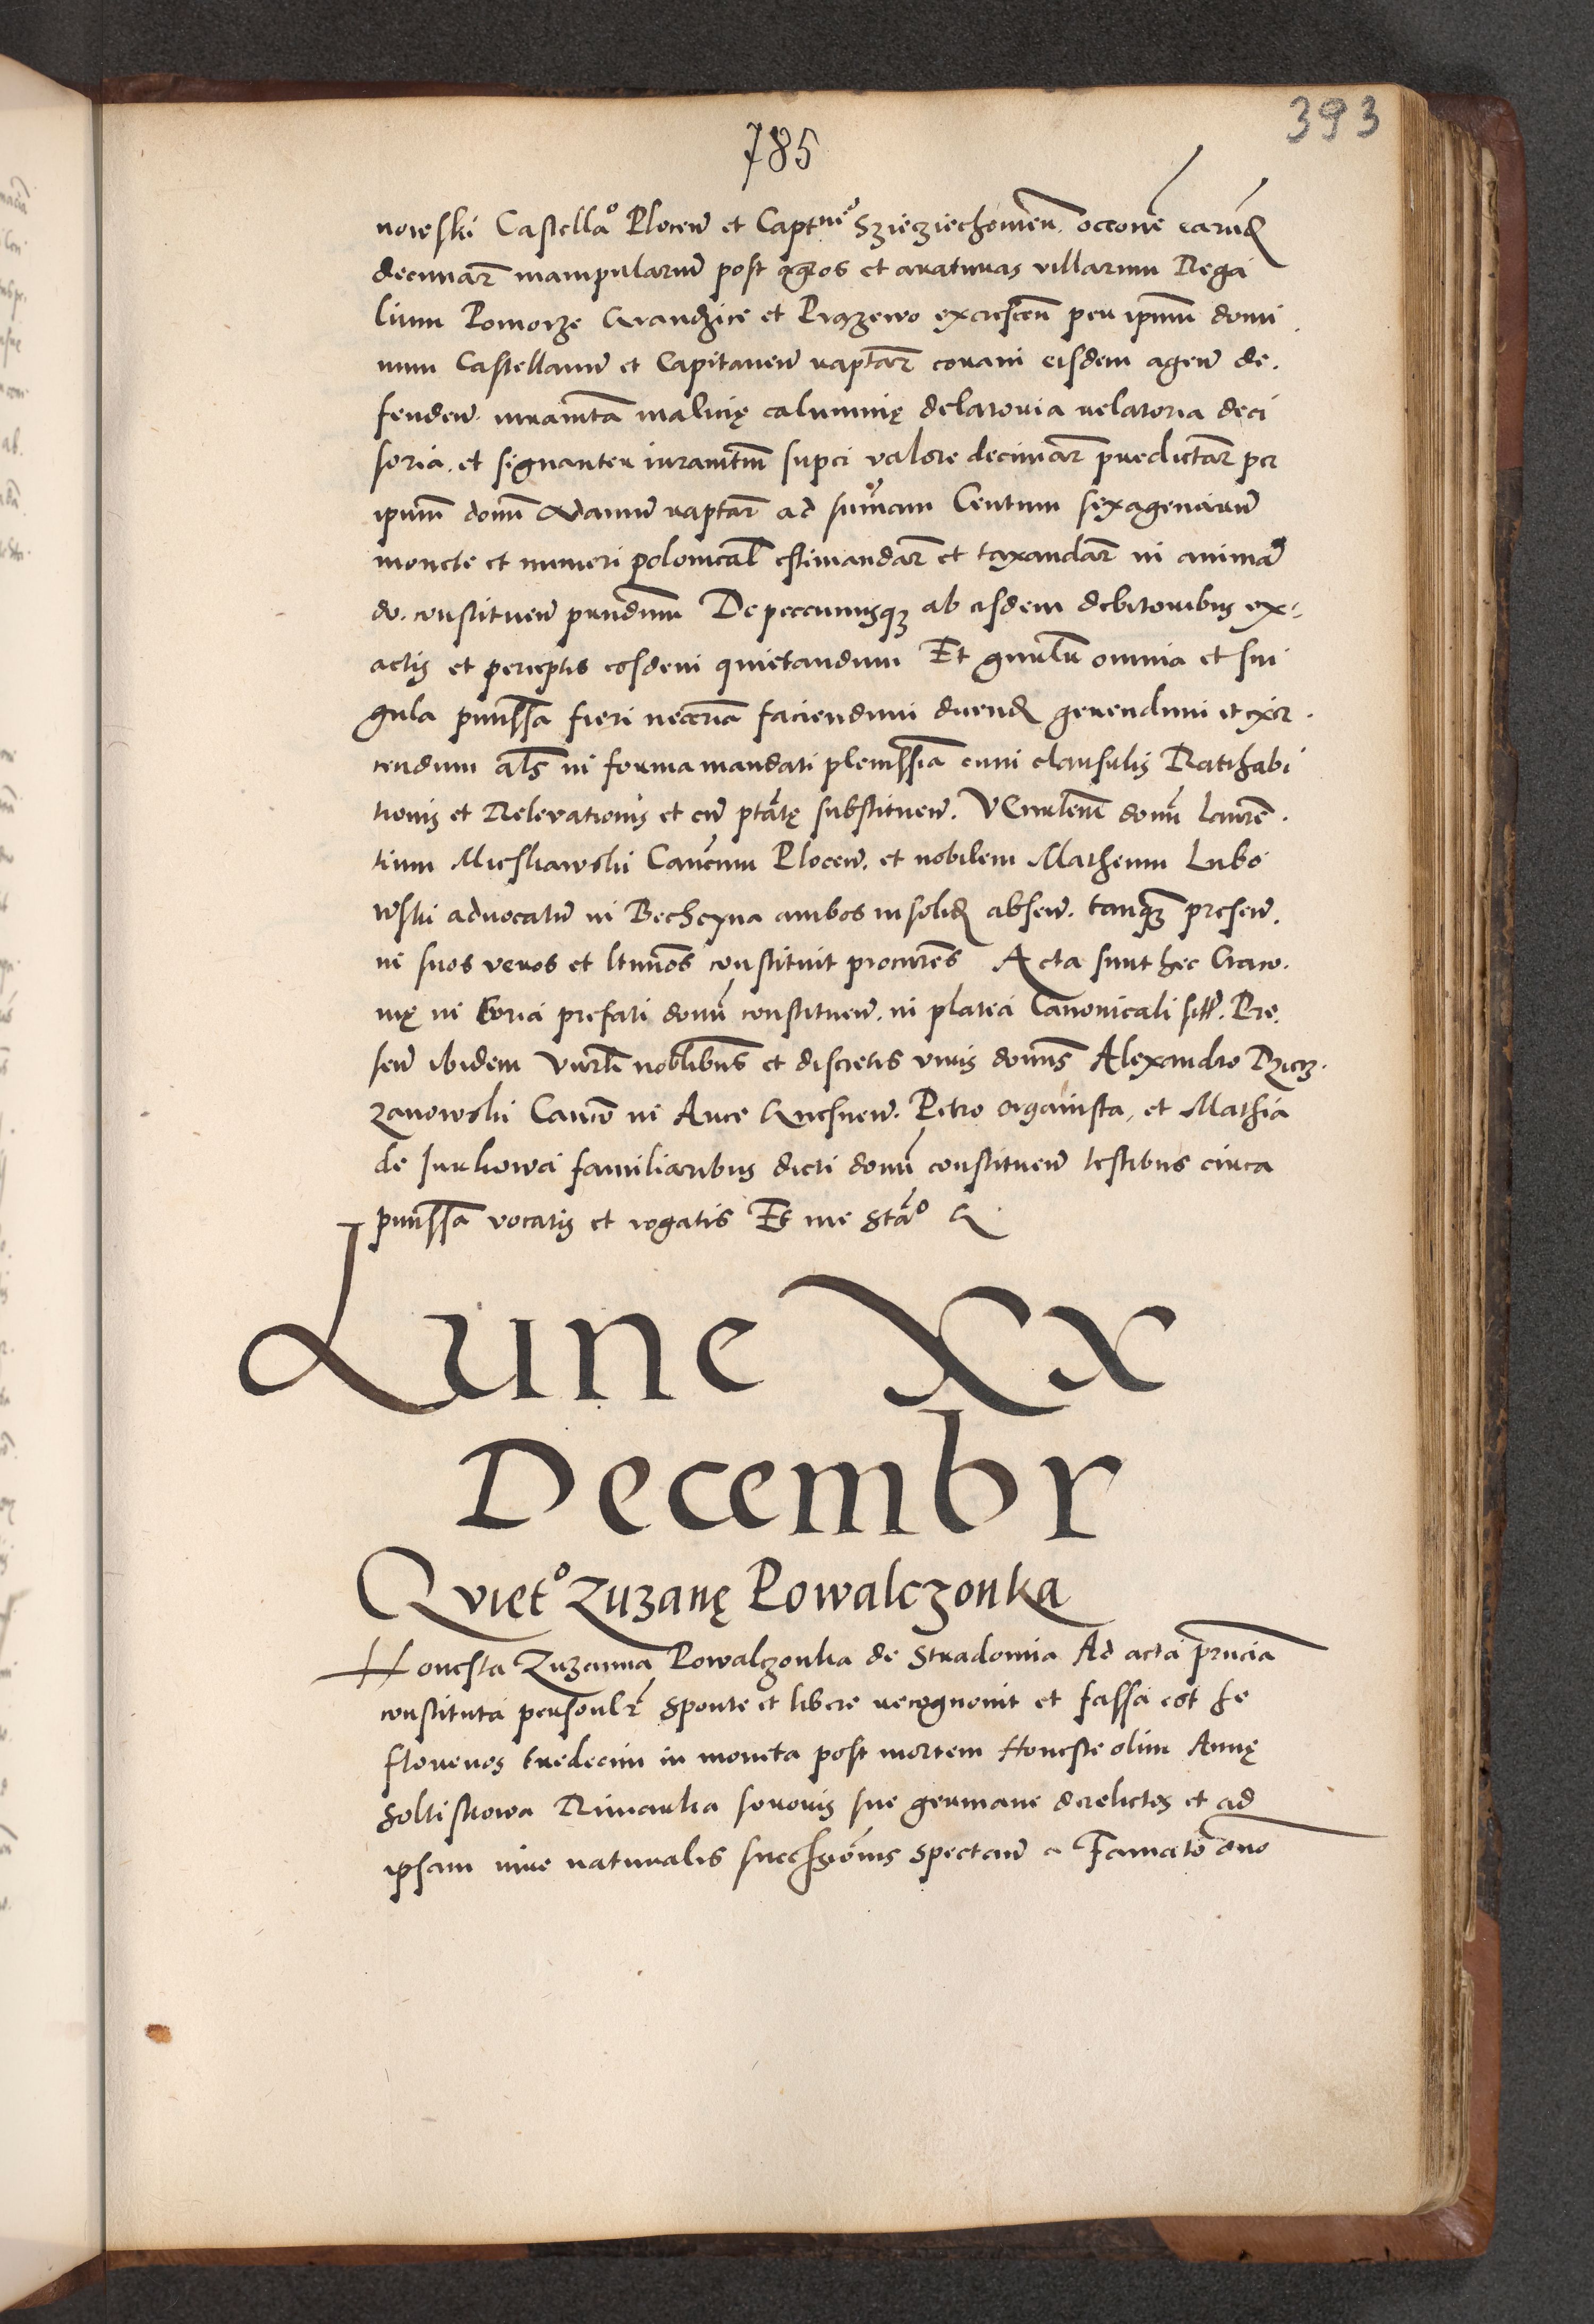 393
785
nowski Castellāo Plocen̄ et Captneō Sziecziechowien. occone earund
decimar manipularium post agros et araturas villarum Rega
lium Pomorze Grandzice et Pączewo excrescen̄ per ipsum domi
num Castellanū et Capitaneū raptar coram eisdem agen̄ de.
fenden̄. iuramta malicię calumnię delatoria relatoria deci
soria. et signanter iuramtum supei valore decimar predictar per
ipsum domn̄ Adamū raptar ad sum̄am Centum sexagenarū
monete et numeri polonical estimandar et taxandar in animā
do. constituen̄ prndum De peccuniisqȝ ab eisdem debitoribus ex-
actis et perceptis eosdem quietandum Et gnrlr̄ omnia et sin
gula pmissa fieri neccria faciendum dicend gerendum et exer.
cendum als in forma mandati plenissīa cum clausulis Ratihabi
tionis et Relevationis et cū ptāte substituen̄. Venrlem̄ domn̄ Lauren̄.
tium Mieskowski Can̄cum Plocen̄. et nobilem Matheum Lubo
wski advocatū in Becheyna ambos insolid absen̄. tanqȝ presen̄.
in suos veros et ltmos constituit procures Acta sunt hec Craco.
vię in Curia prefati domn̄ constituen̄. in platea Canonicali sitt. Pre.
sen̄ ibidem Venrli noblibus et discretis viris domn̄s Alexandro Dzierz.
zanowski Can̄co in Arce Gnesnen̄. Petro organista, et Mathia
de Jurkowa familiaribus dicti domn̄ constituen̄ testibus circa
pmissa vocatis et rogatis Et me Stāo &.
Lune XX
Decembr
Quiet° Zuzanę Powalczonka
Honesta Zuzanna Powalczonka de Stradomia Ad acta prncia
constituta personlr̄ sponte et libere recognovit et fassa est se
florenos tredecim in moneta post mortem Honeste olim Annę
Soltiskowa Rimarka sororis sue germane derelictos et ad
ipsam iure naturalis successionis spectan̄ a Famato